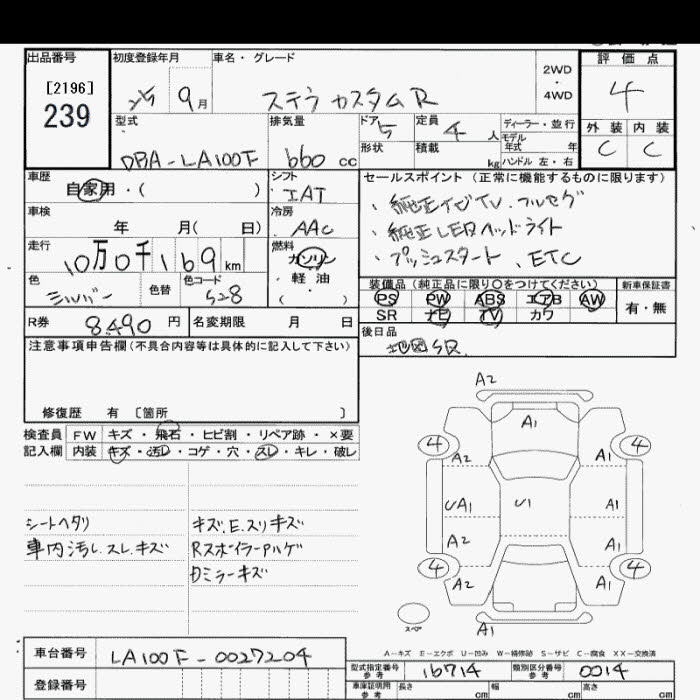 出品番号 初度登録年月 車名・グレード 評価点
[2196]
239
9月 ステラ カスタムR 2WD・4WD 4
型式 排気量 ドア 定員 ディーラー・並行 外装 内装
DBA-LA100F 660 cc 5 4人 モデル年式 年 C C
形状 積載 kg ハンドル 左・右
車歴 シフト セールスポイント(正常に機能するものに限ります)
自家用・( ) IAT
・純正ナビTV.フルセグ
車検 冷房
年 月( 日) AAC
・純正LEDヘッドライト
走行 燃料
10万0千169km ガソリン・軽油・( )
・プッシュスタート、ETC
色 色替 色コード 装備品(純正品に限り○をつけてください) 新車保証書
シルバー S28 PS PW ABS エアB AW 有・無
SR ナビ TV カワ
R券 8,490円 名変期限 月 日 後日品
地図SR.
注意事項申告欄(不具合内容等は具体的に記入して下さい)
修復歴 有 〔箇所 〕
検査員 FW キズ・飛石・ヒビ割・リペア跡・×要
記入欄 内装 キズ・汚レ・コゲ・穴・スレ・キレ・破レ
A2
A1
4 4
A2 A1
UA1 U1 A1
A2 A1
4 4
A2 A1
A1
スペア
シートヘタリ キズ.E.スリキズ
車内汚し.スレ.キズ RスポイラーPハゲ
Dミラーキズ
A-キズ E-エクボ U-凹み W-補修跡 S-サビ C-腐食 XX-交換済
車台番号 LA100F-0027204
型式指定番号 参考 16714 類別区分番号 参考 0014
登録番号 車庫証明用 参考 長さ cm 幅 cm 高さ cm